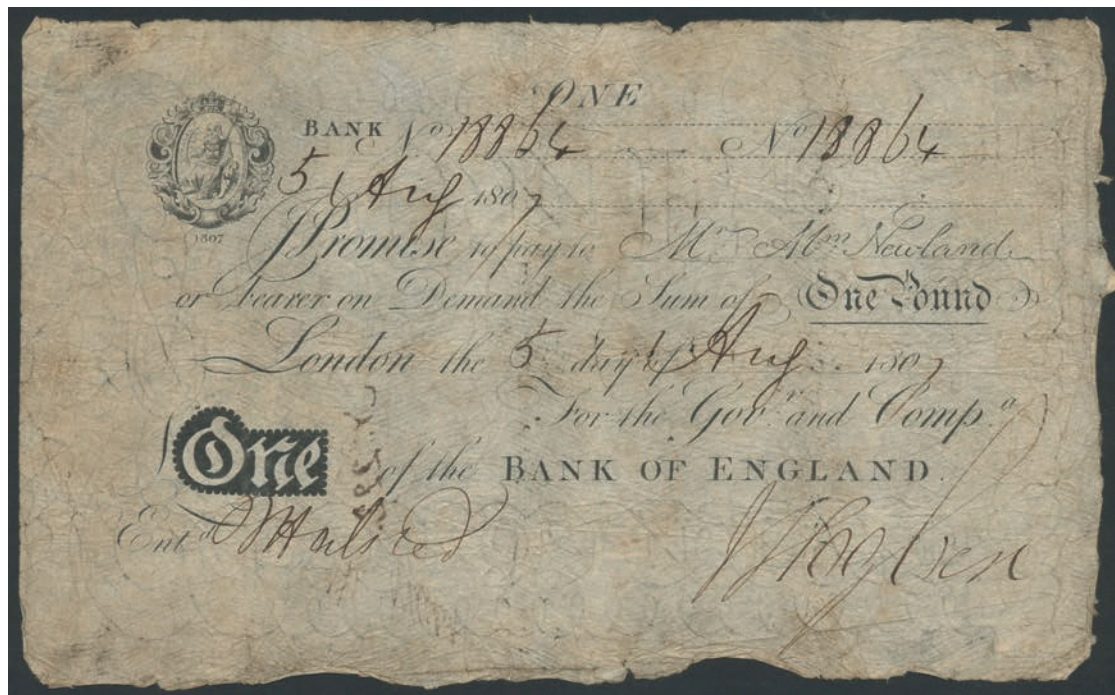 ONE
BANK No 18864 No 18864
5 Aug 1807
1807
I Promise to pay to Mr. Abm Newland
or bearer on Demand the Sum of One Pound
London the 5 day of Aug 1807
For the Govr. and Compa.
One of the BANK OF ENGLAND.
Entd